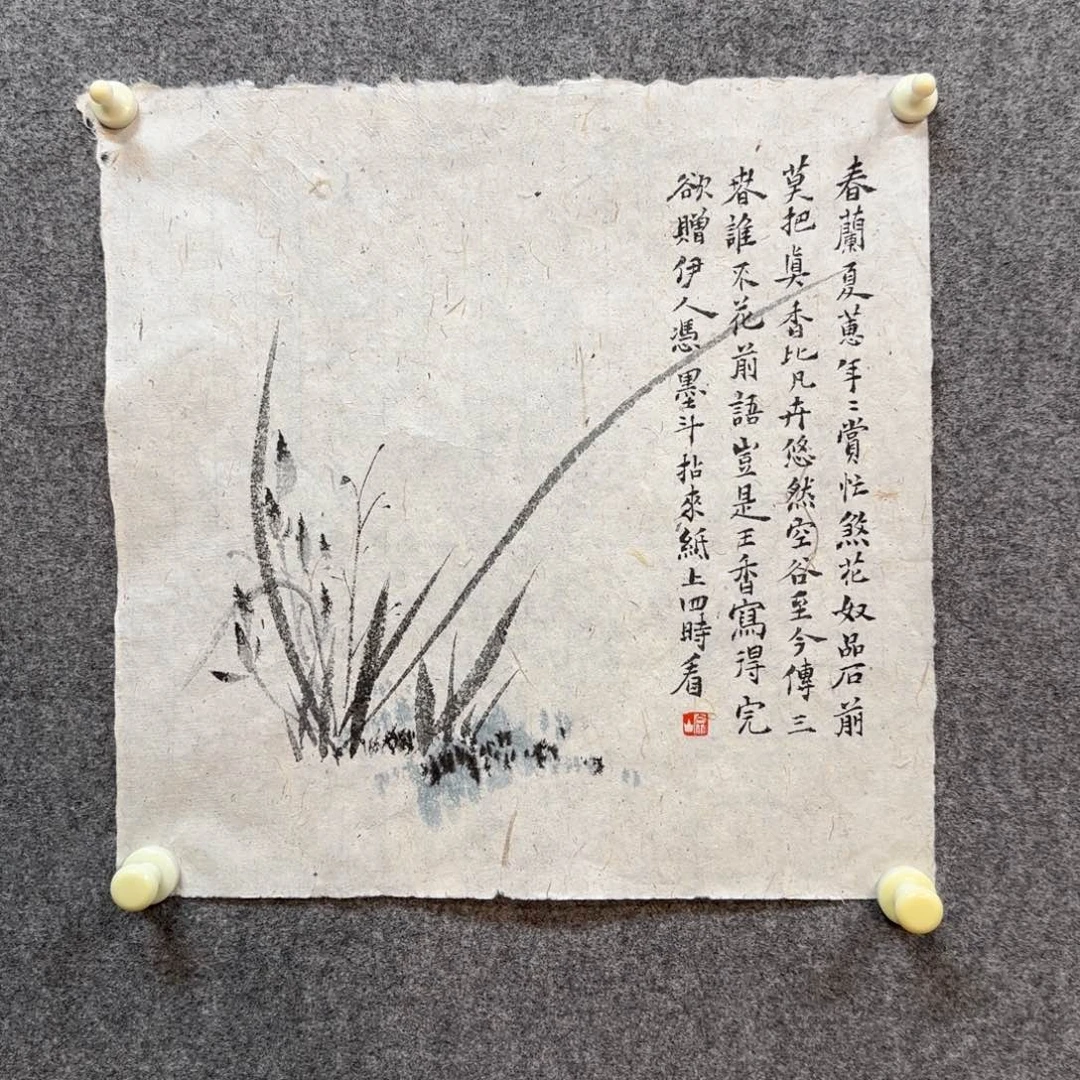 春蘭夏蕙年〻賞忙煞花奴品石前
莫把眞香比凡卉悠然空谷至今傳三
春誰不花前語豈是王香寫得完
欲贈伊人憑墨斗拈來紙上四時看